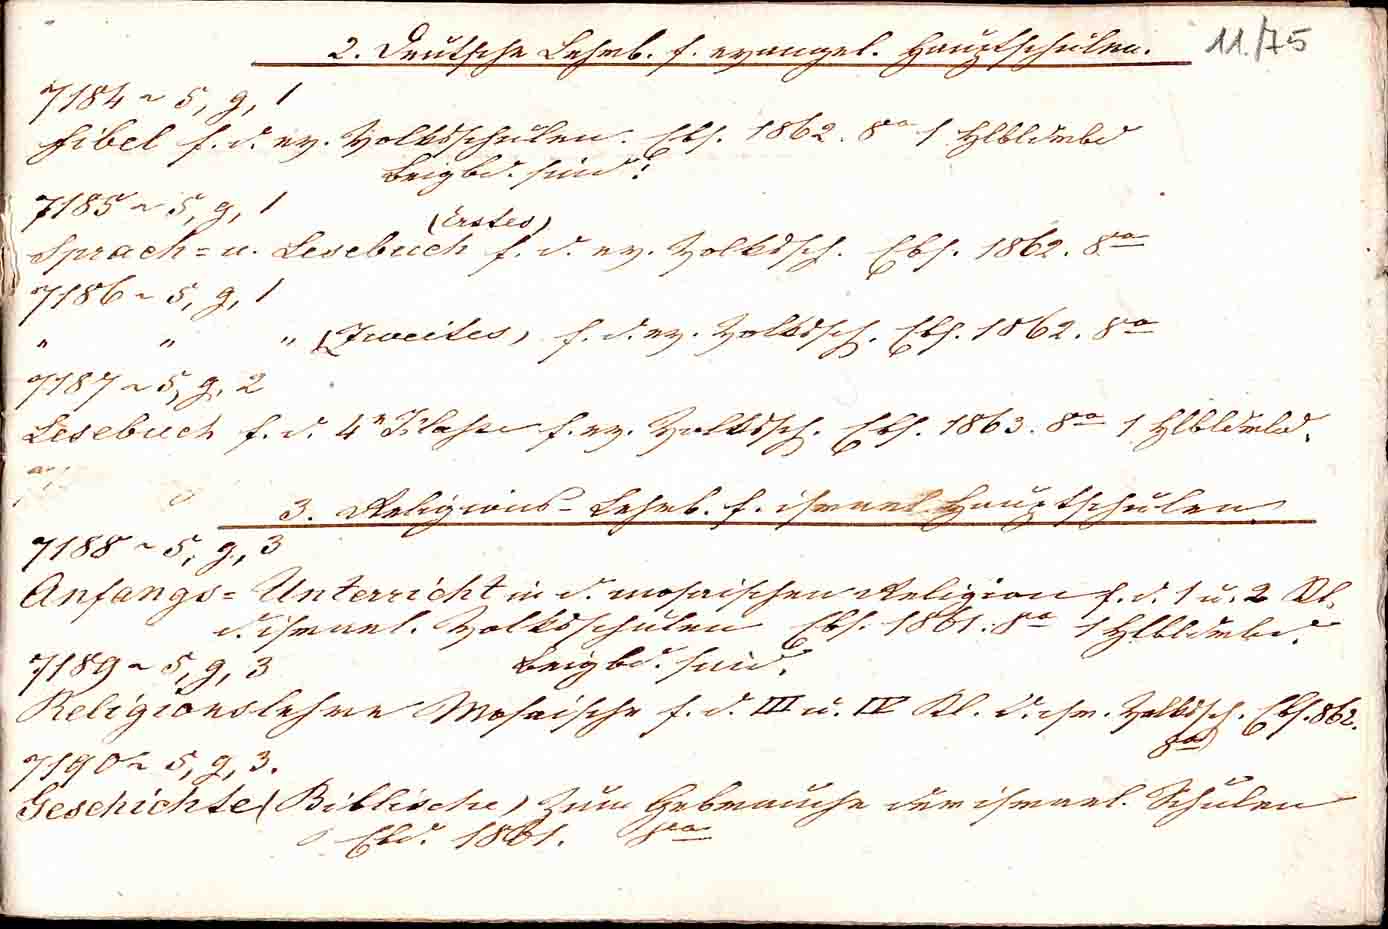 2. Deutsche Lehrb. f. evangel. Hauptschulen.
11/75
7184 ~ 5, g, 1
Fibel f. d. ev. Volksschulen. Ebf. 1862. 8º 1 Hlbldrbd
Beigbd. sind:
7185 ~ 5, g, 1
(Erstes)
Sprach= u. Lesebuch f. d. ev. Volkssch. Ebf. 1862. 8º
7186 ~ 5, g, 1
" " " (Zweites) f. d. ev. Volkssch. Ebf. 1862. 8º
7187 ~ 5, g, 2
Lesebuch f. d. 4n Klasse f. ev. Volkssch. Ebf. 1863. 8º 1 Hlbldrbd.
3. Religions-Lehrb. f. israel. Hauptschulen
7188 ~ 5, g, 3
Anfangs= Unterricht in d. mosaischen Religion f. d. 1 u. 2 Kl.
d. israel. Volksschulen Ebf. 1861. 8º 1 Hlbldrbd.
7189 ~ 5, g, 3 Beigbd. sind.
Religionslehre Mosaische f. d. III u. IV Kl. d. isr. Volkssch. Ebf. 862.
8º
7190 ~ 5, g, 3.
Geschichte (Biblische) zum Gebrauche der israel. Schulen
Ebd. 1861. 8º